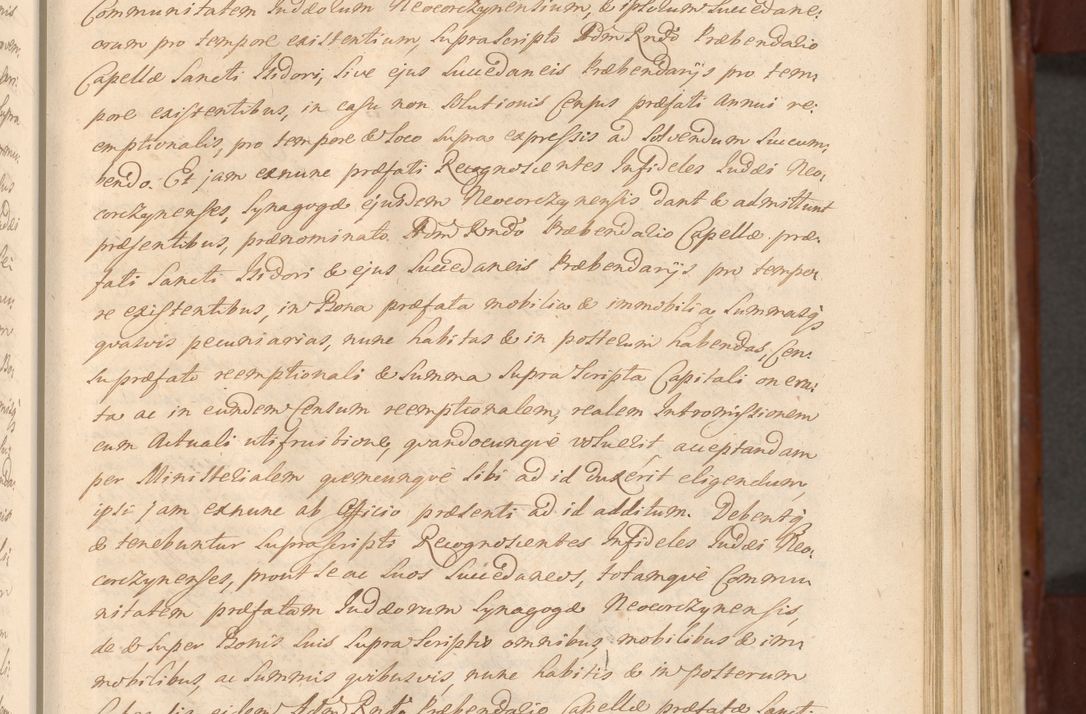 Communitatem Judæorum Neocorczynensium, & ipsorum Succedane:
orum pro tempore existentium, supra scripto Adm Rndo Præbendario
Capellæ Sancti Isidori, sive ejus Succedaneis Præbendarijs pro tem:
pore existentibus, in casu non solutionis Census præfati annui re:
emptionalis, pro tempore & loco supra expressis ad solvendum succum:
bendo. Et jam exnunc præfati Recognoscentes Infideles Judæi Neo:
corczynenses, Synagogæ ejusdem Neocorczynensis dant & admittunt
præsentibus, prænominato Adm Rndo Præbendario Capellæ præ:
fati Sancti Isidori & ejus Succedaneis Præbendarijs pro tempo:
re existentibus, in Bona præfata mobilia & immobilia, Summasq
quasvis pecuniarias, nunc habitas & in posterum habendas, Cen:
su præfato reemptionali & Summa supra scripta Capitali onera:
ta ac in eundem Censum reemptionalem, realem Intromissionem
cum Actuali utifruitione, quandocunqve voluerit, acceptandam
per Ministerialem quemcunqvè sibi ad id duxerit eligendum,
ipsi jam exnunc ab Officio præsenti ad id additum. Debentq
& tenebuntur suprascripti Recognoscentes Infideles Judæi Neo:
corczynenses, prout se ac suos Succedaneos, totamqvè Commu:
nitatem præfatam Judæorum Synagogæ Neocorczynensis,
de & super Bonis suis supra scriptis omnibus, mobilibus & im:
mobilibus, ac Summis quibusvis, nunc habitis & in posterum
eidem Adm Rndo Præbendario Capellæ præfatæ Sancti